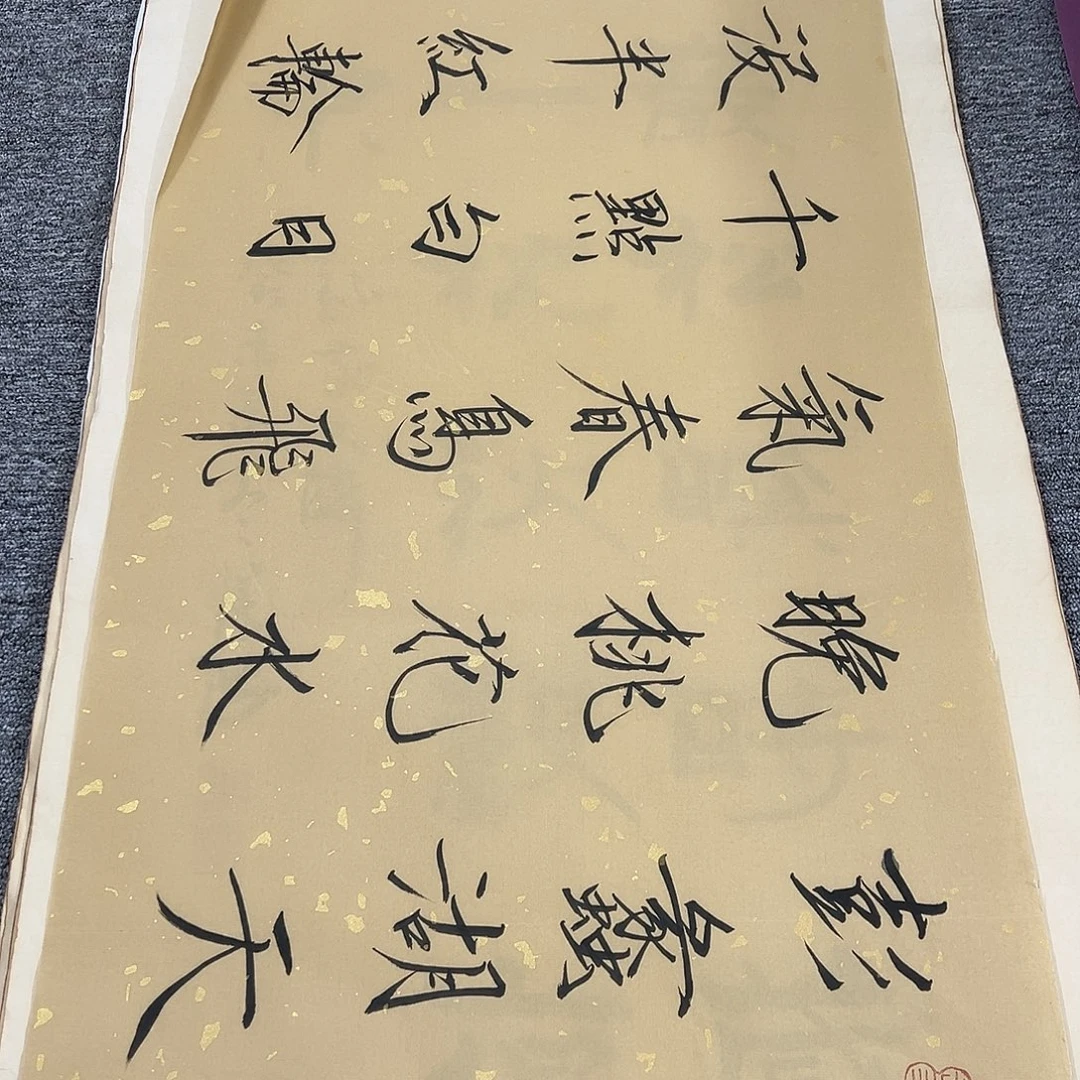 彭蠡湖天
晚桃花水
氣春鳥飛
千點白日
没半紅輪